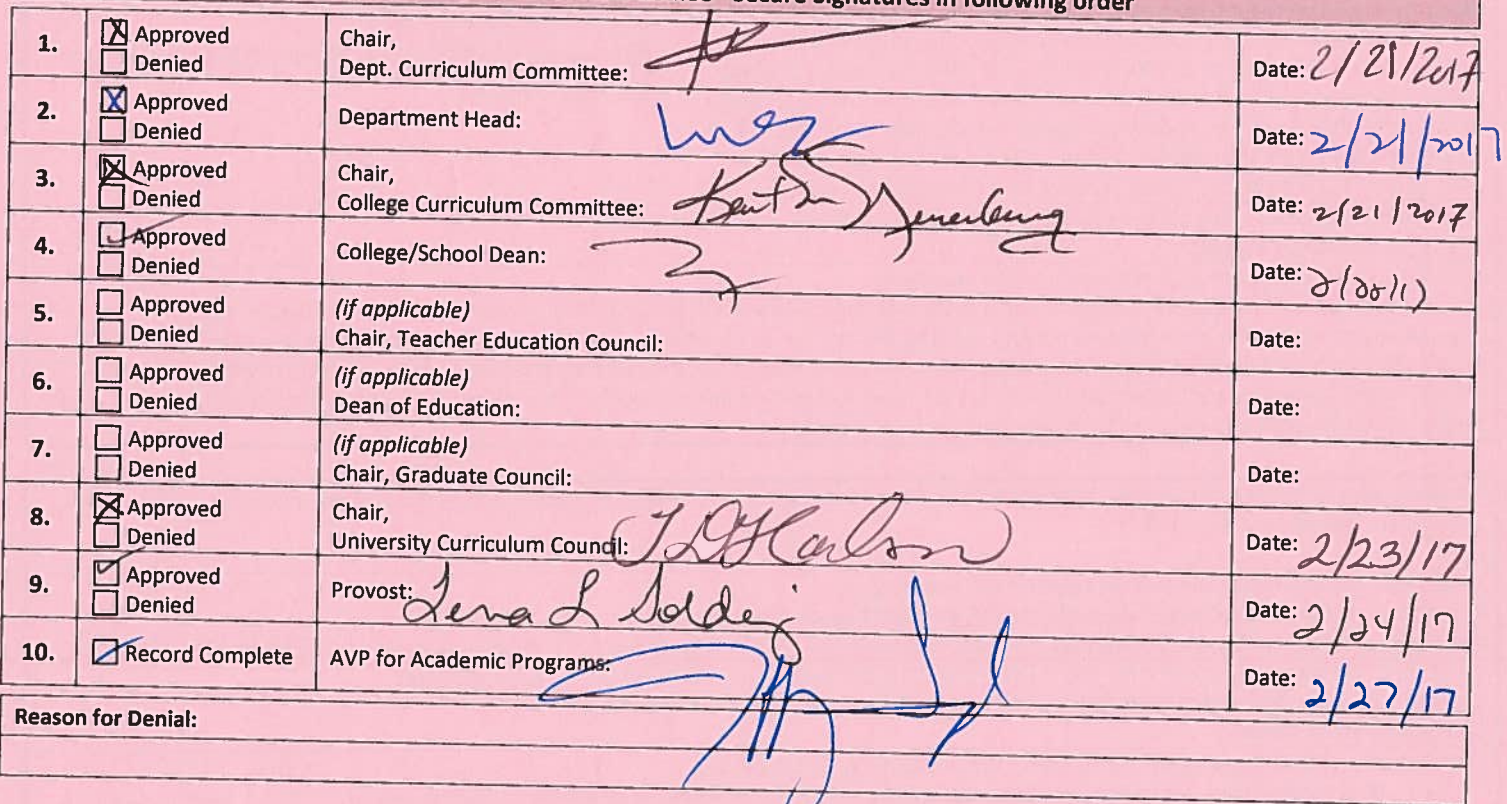 Secure Signatures in following order
1. Approved Denied Chair,
Dept. Curriculum Committee: Date: 2/21/2017
2. Approved Denied Department Head: Date: 2/21/2017
3. Approved Denied Chair,
College Curriculum Committee: Date: 2/21/2017
4. Approved Denied College/School Dean: Date:
5. Approved Denied (if applicable)
Chair, Teacher Education Council: Date:
6. Approved Denied (if applicable)
Dean of Education: Date:
7. Approved Denied (if applicable)
Chair, Graduate Council: Date:
8. Approved Denied Chair,
University Curriculum Council: Date: 2/23/17
9. Approved Denied Provost: Lena L Date: 2/24/17
10. Record Complete AVP for Academic Programs: Date: 2/27/17
Reason for Denial: